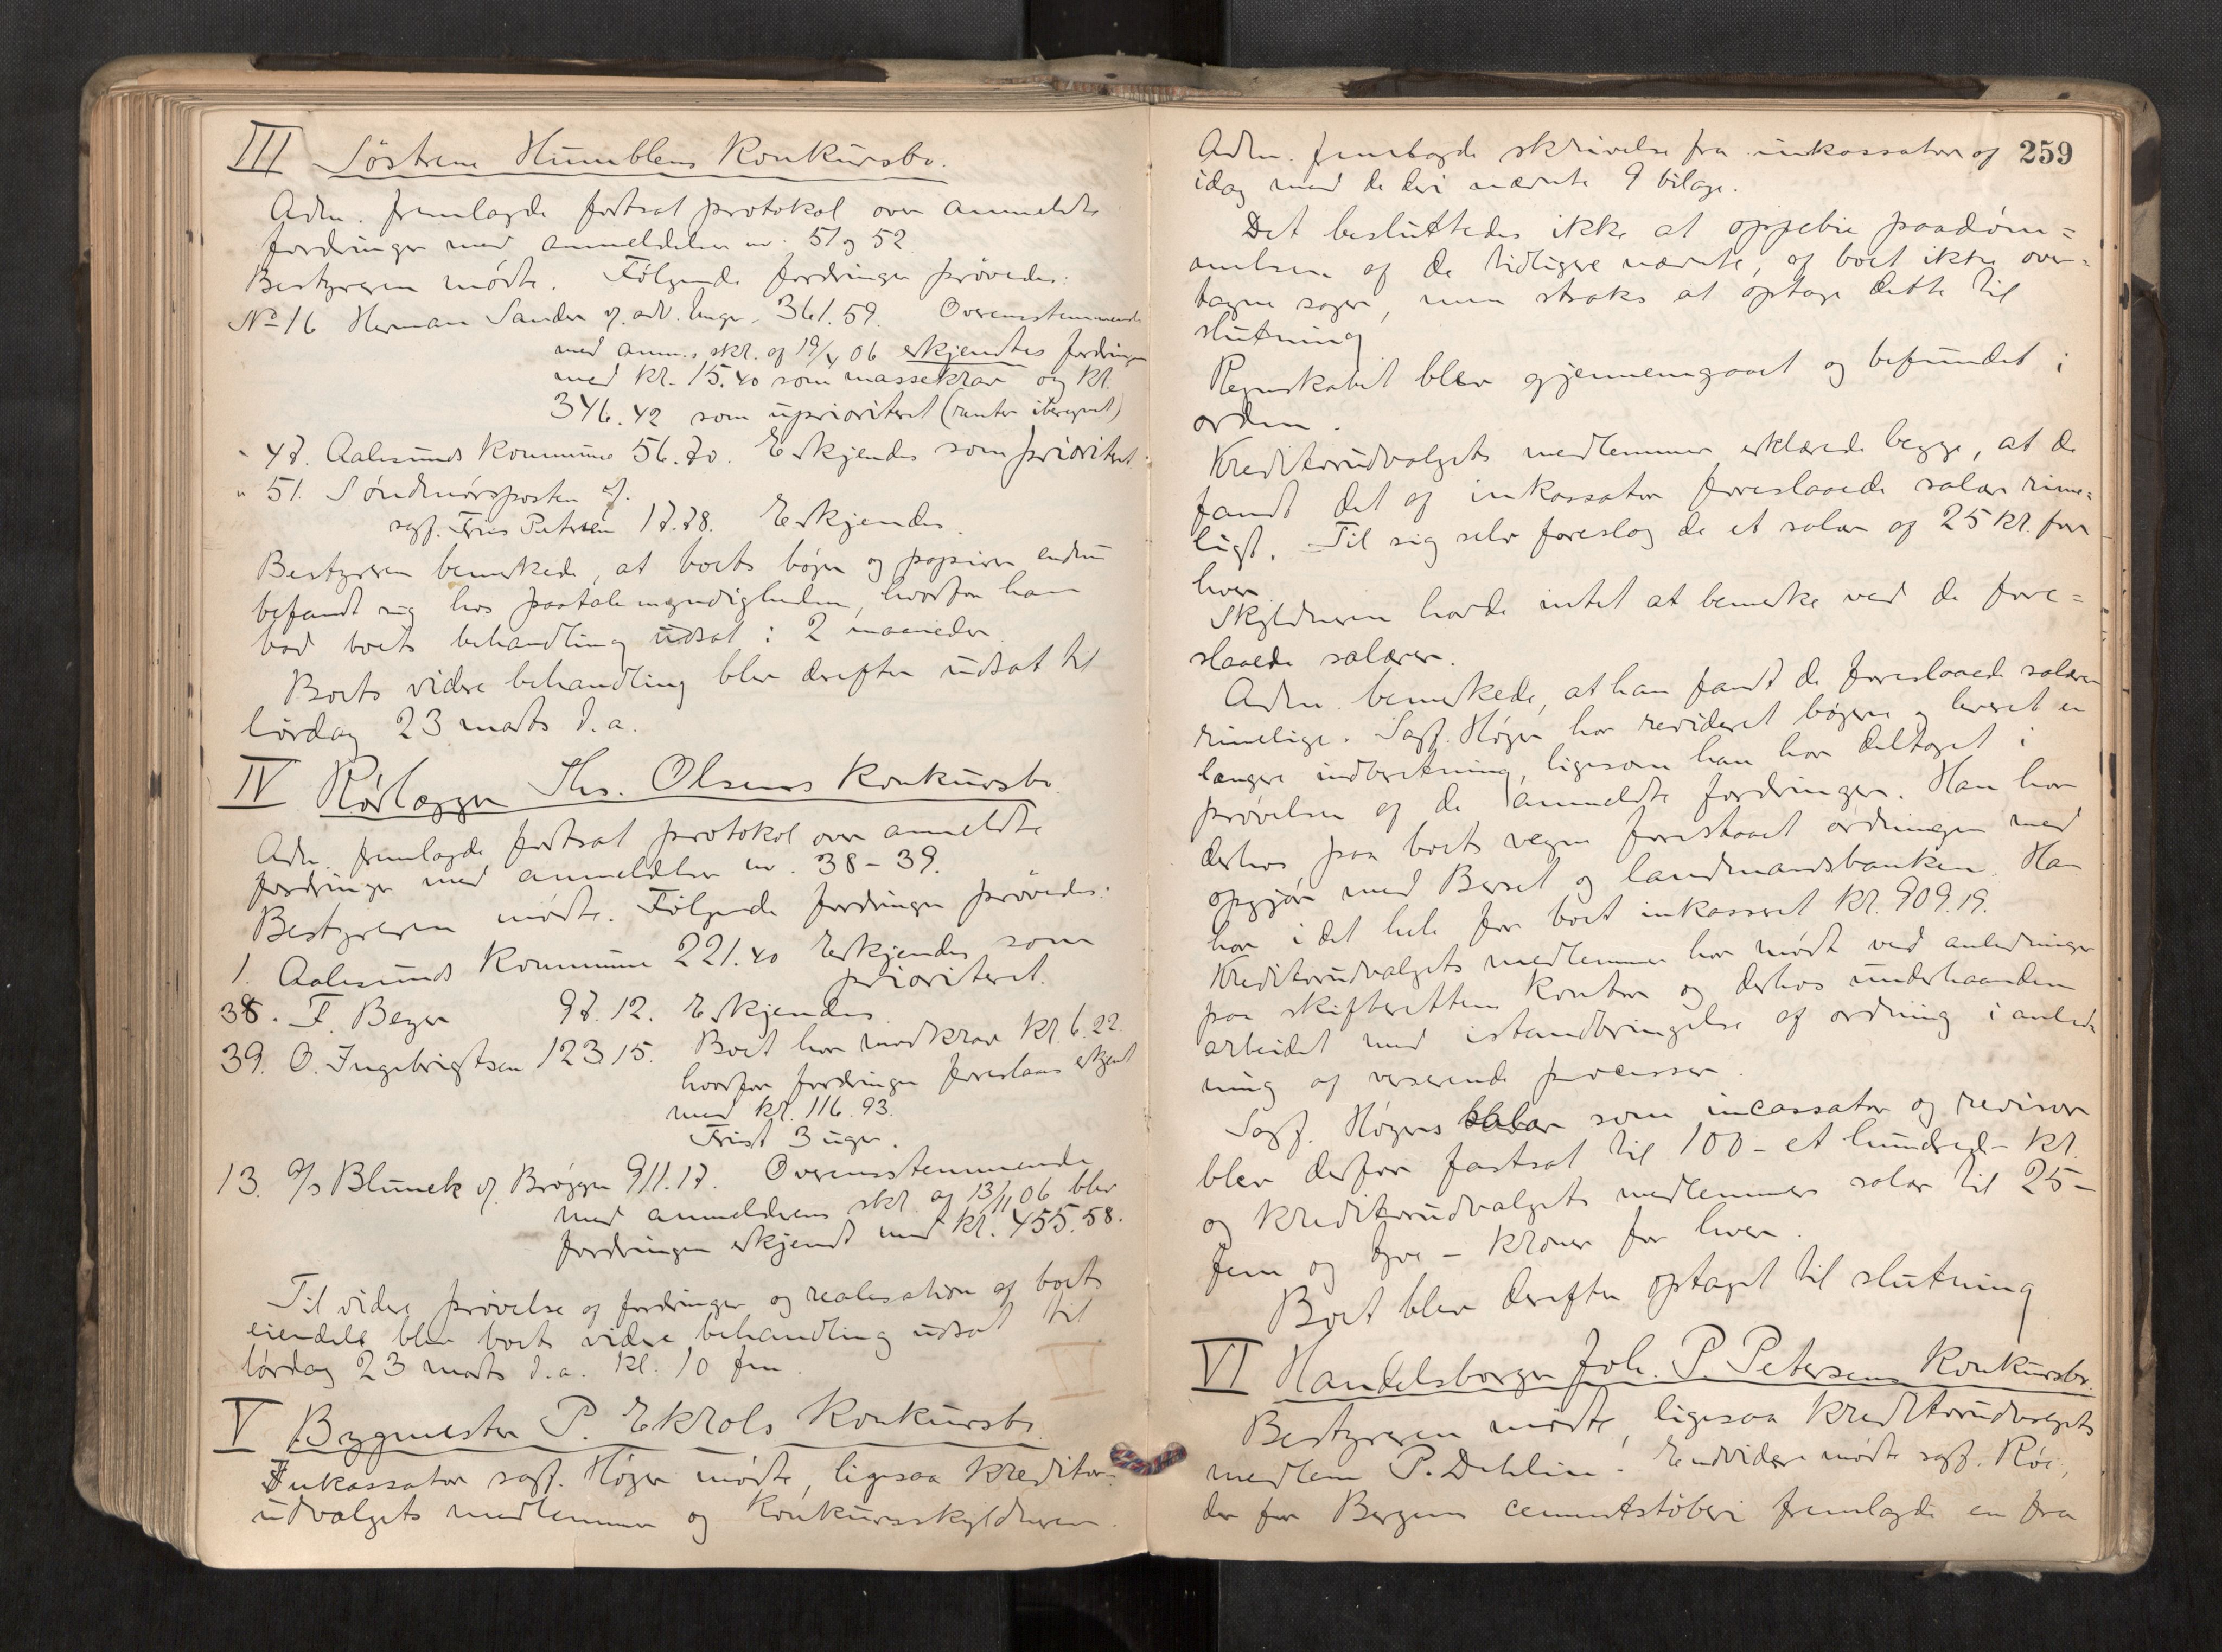 III Søstrene Humblens Konkursbo.
Adm. fremlagde fortsat protokol over anmeldte
fordringer med anmeldelser nr. 51 og 52
Bestyreren mødte. Følgende fordringer prøvedes:
No 16 Herman Sander v. adv. Unger. 361.59. Overensstemmende
med anm.s skr. af 19/x 06 erkjendtes fordringen
med kr. 15.40 som massekrav og kr.
346.42 som uprioritert (renter iberegnet)
" 47. Aalesunds Kommune 56.70. Erkjendes som prioritet.
" 51. Søndmørsposten v/.
sagf. Friis Petersen 17.78. Erkjendes
Bestyreren bemerkede, at boets bøger og papirer endnu
befandt sig hos paatalemyndigheden, hvorfor han
bad boets behandling udsat i 2 maaneder
Boets videre behandling blev derefter udsat til
lørdag 23 marts d.a.
IV Rørlægger Ths. Olsens Konkursbo
Adm. fremlagde fortsat protokol over anmeldte
fordringer med anmeldelser nr. 38-39.
Bestyreren mødte. Følgende fordringer prøvedes:
1. Aalesunds Kommune 221.40 Erkjendes som
prioriteret.
38. F. Beyer 97.12. Erkjendes
39. O. Ingebrigtsen 123.15. Boet har modkrav kr. 6.22.
hvorfor fordringen foreslaaes erkjent
med kr. 116.93.
Frist 3 uger.
13. A/s Blunck v. Brøgger 911.17. Overensstemmende
med anmelderens skr. af 13/11 06 blev
fordringen erkjendt med kr. 455.58.
Til videre prøvelse af fordringer og realisation af boets
eiendele blev boets videre behandling udsat til
lørdag 23 marts d.a. kl. 10 fm.
V Bygmester P. Ekrols Konkursbo.
Inkassator sagf. Høyer mødte, ligesaa kreditor-
udvalgets medlemmer og konkursskyldneren.
259
Adm. fremlagde skrivelse fra inkassator af
idag med de deri nævnte 9 bilage.
Det besluttedes ikke at oppebie paadøm=
melsen af de tidligere nævnte, af boet ikke over=
tagne sager, men straks at optage dette til
slutning
Regnskabet blev gjennemgaaet og befundet i
orden.
Kreditorudvalgets medlemmer erklærede begge, at de
fandt det af inkassator foreslaaede salær rime=
ligt. Til sig selv foreslog de et salær af 25 kr. for
hver
Skyldneren havde intet at bemerke ved de fore=
slaaede salærer.
Adm. bemerkede, at han fandt de foreslaaede salærer
rimelige. Sagf. Høyer har revideret bøgerne og leveret en
længere indberetning, ligesom han har deltaget i
prøvelsen af de anmeldte fordringer. Han har
derhos paa boets vegne forestaaet ordningen med
opgjør med Berset og landmandsbanken. Han
har i det hele for boet inkasseret kr. 909.19.
Kreditorudvalgets medlemmer har mødt ved anledninger
paa skifterettens kontor og derhos underhaanden
arbeidet med istandbringelse af ordning i anled-
ning af verserende processer.
Sagf. Høyers salær som incassator og revisor
blev derfor fastsat til 100 - et hundred - kr.
og kreditorudvalgets medlemmers salær til 25 -
fem og tyve - kroner for hver.
Boet blev derefter optaget til slutning
VI Handelsborger Joh. P. Petersens Konkursbo.
Bestyreren mødte, ligesaa kreditorudvalgets
medlem P. Dehlin. Endvidere mødte sagf. Röe,
der for Bergens cementstøberi fremlagde en fra